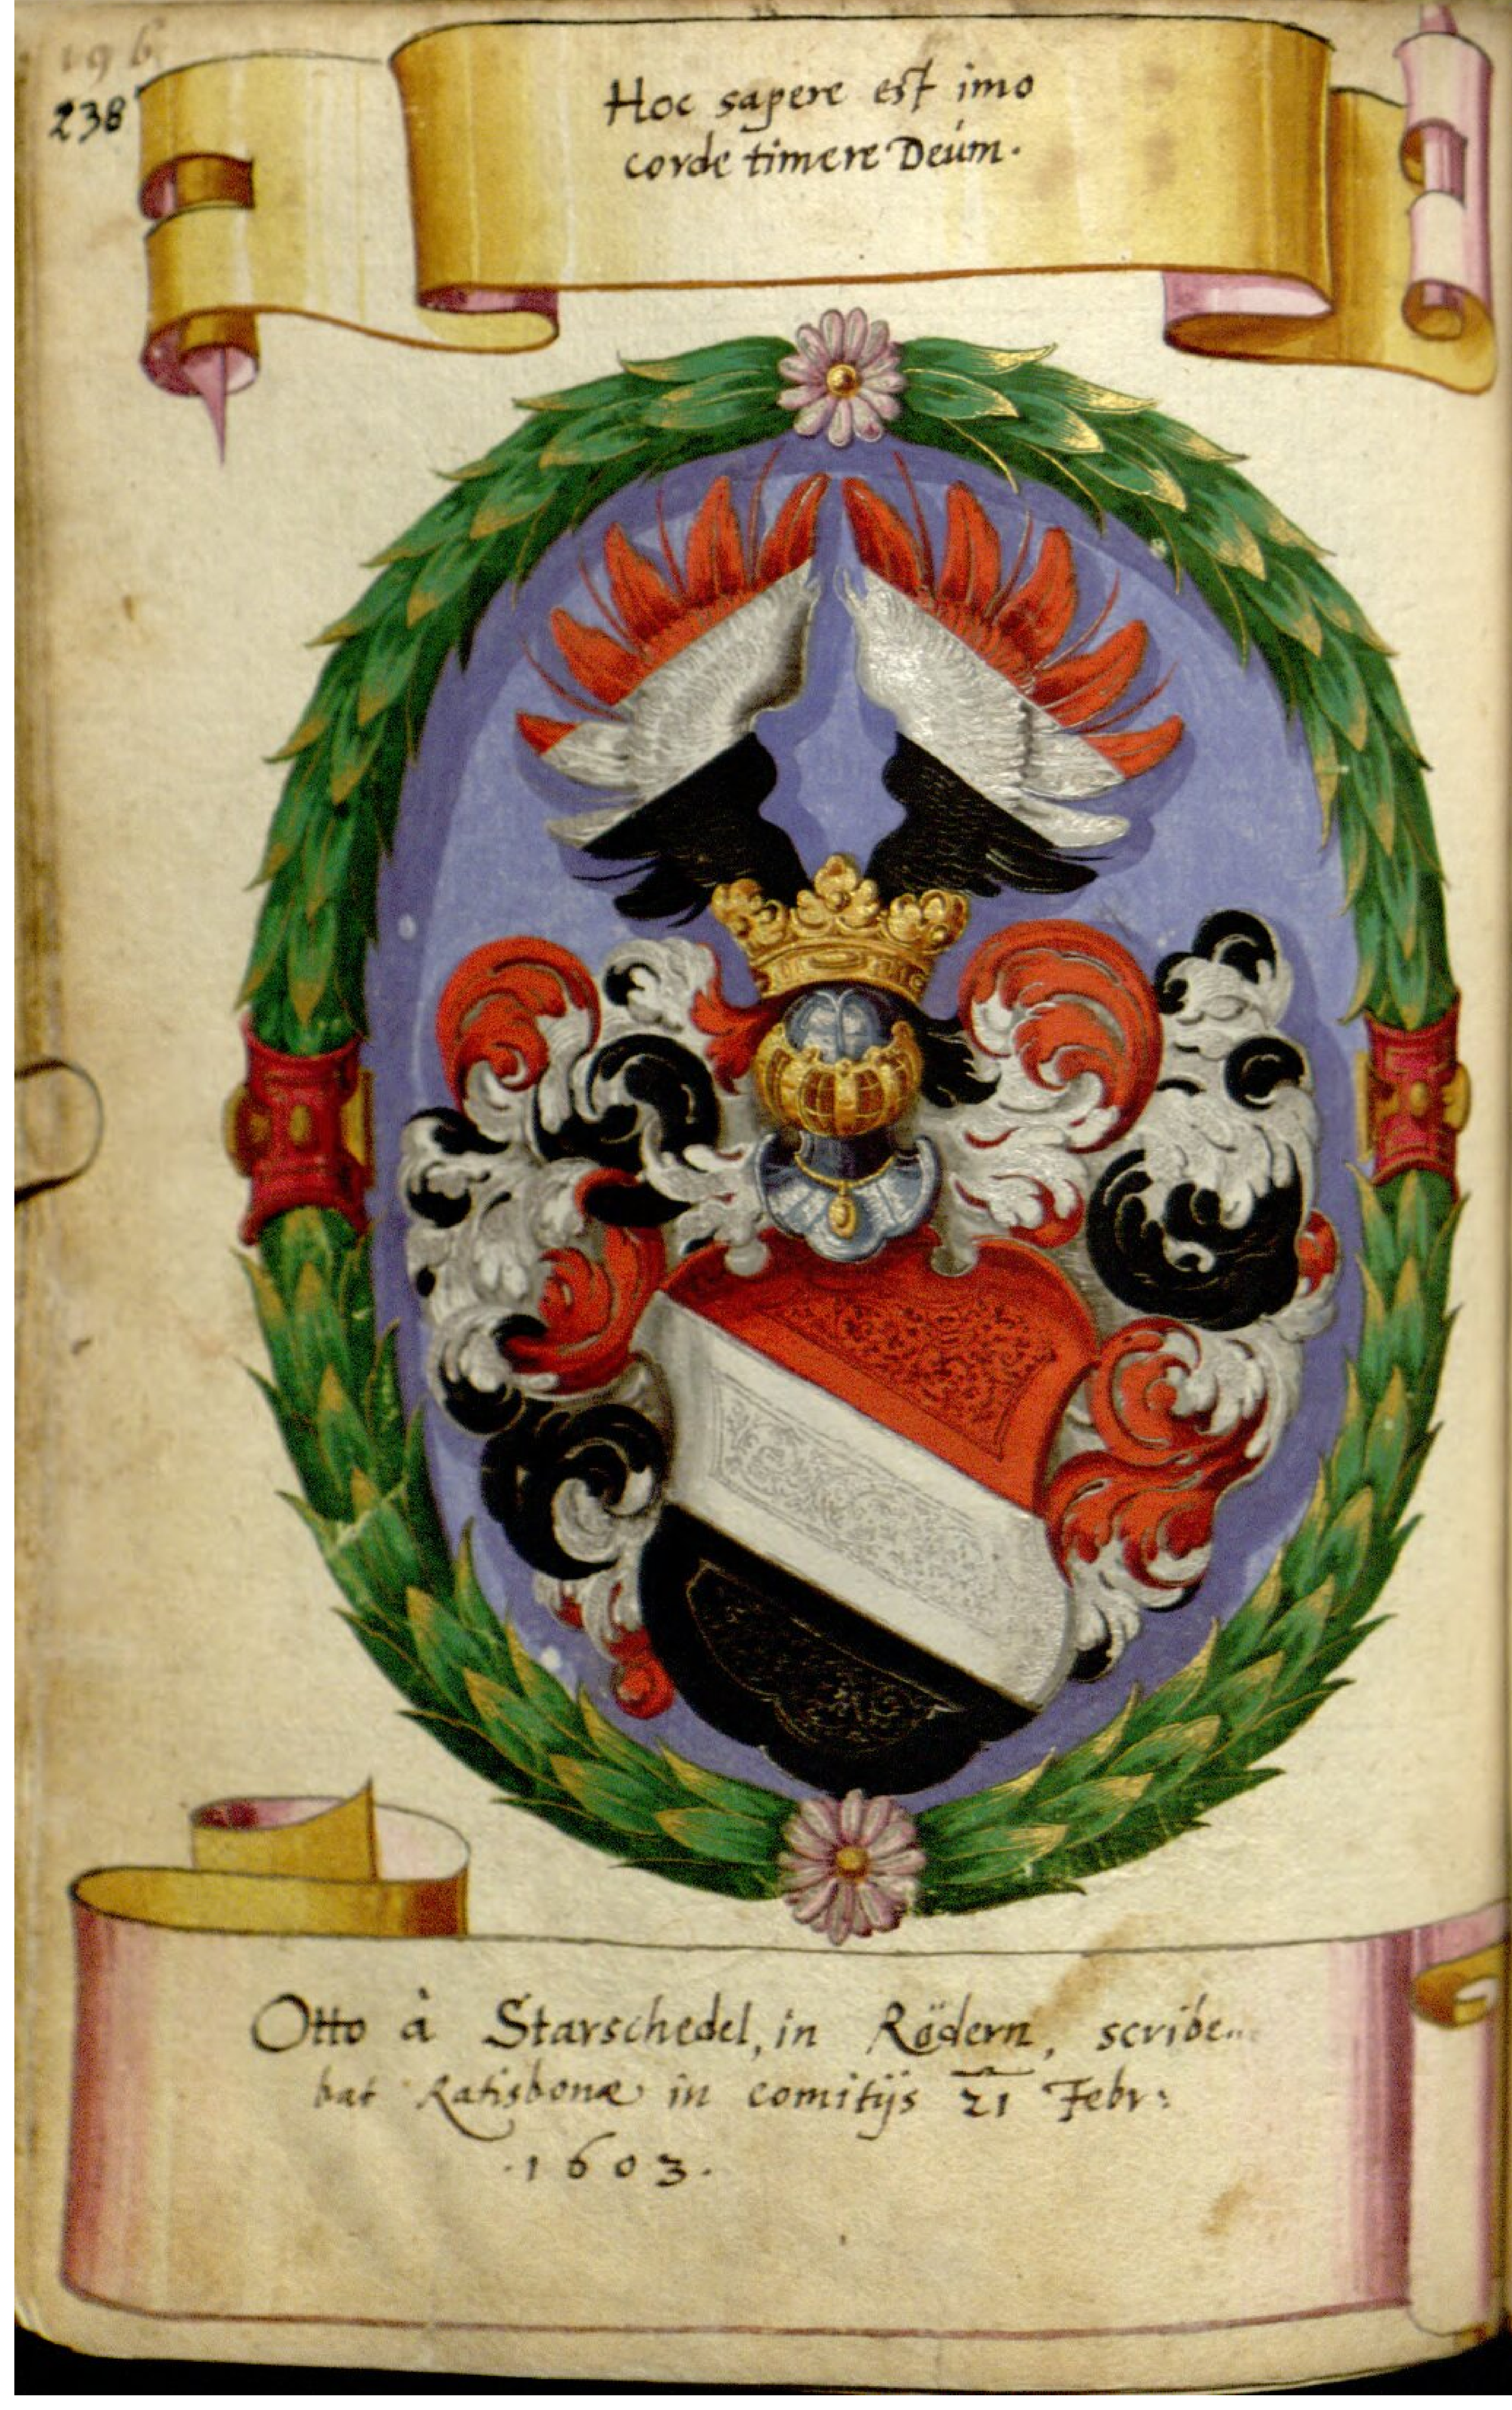 196
238
Hoc sapere est imo
corde timere Deúm.
Otto à Starschedel, in Rädern, scribe
bat Ratisbonæ in comitijs 21 Febr:
.1603.